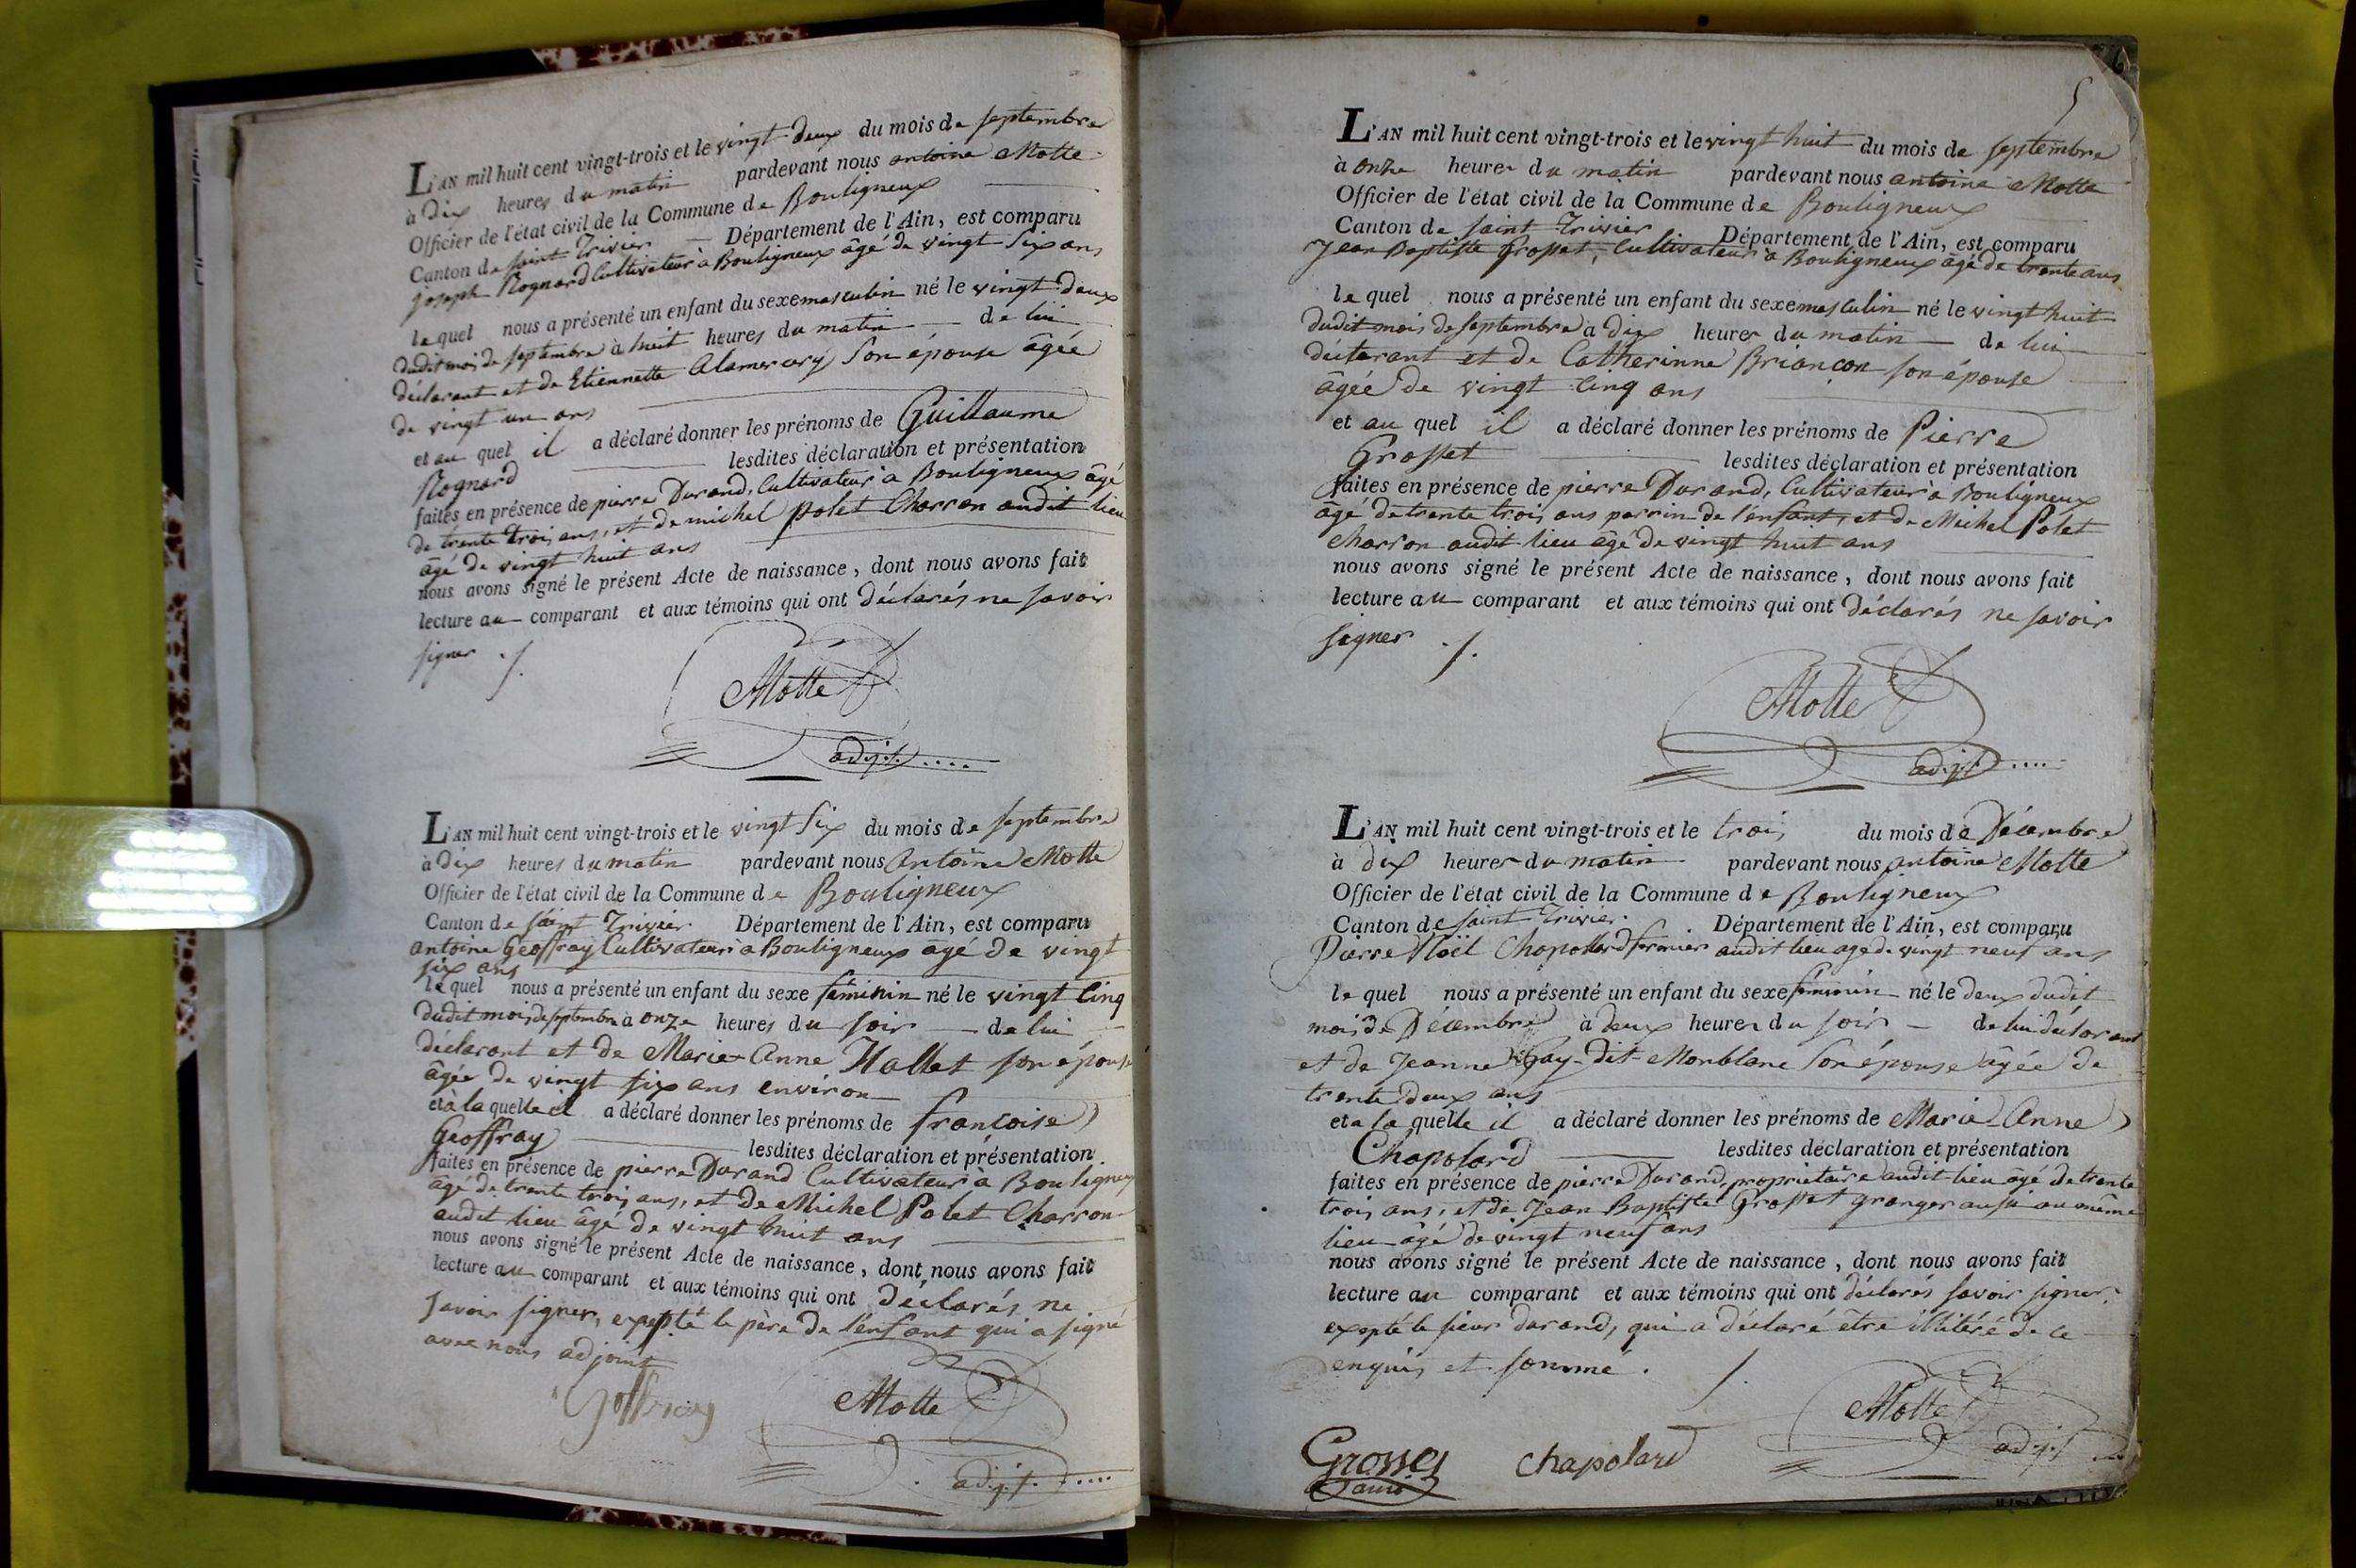 L'AN mil huit cent vingt-trois et le vingt deux du mois de septembre
à dix heures du matin pardevant nous antoine Motte
Officier de l'état civil de la Commune de Bouligneux
Canton de saint Trivier Département de l'Ain, est comparu
joseph Rognard Cultivateur a Bouligneux âgé de vingt Six ans
le quel nous a présenté un enfant du sexe masculin né le vingt deux
dudit mois de septembre à huit heures du matin de lui
déclarant et de Etiennette Alamercery Son épouse âgée
de vingt un ans
et au quel il a déclaré donner les prénoms de Guillaume
Rognard lesdites déclaration et présentation
faites en présence de pierre Durand, Cultivateur à Bouligneux âgé
de trente trois ans, et de michel polet Charron audit lieu
âgé de vingt huit ans
nous avons signé le présent Acte de naissance, dont nous avons fait
lecture au comparant et aux témoins qui ont déclarés ne savoir
signer ./.
Motte
adj.t.....
L'AN mil huit cent vingt-trois et le vingt Six du mois de septembre
à dix heures du matin pardevant nous Antoine Motte
Officier de l'état civil de la Commune de Bouligneux
Canton de saint Trivier Département de l'Ain, est comparu
antoine Geoffray Cultivateur a Bouligneux agé de vingt
six ans
le quel nous a présenté un enfant du sexe féminin né le vingt Cinq
dudit mois de septembre à onze heures du soir de lui
declarant et de Marie-Anne Hallet son épouse
âgée de vingt six ans environ
et à la quelle il a déclaré donner les prénoms de françoise
Geoffray lesdites déclaration et présentation
faites en présence de pierre Durand Cultivateur à Bouligneux
âgé de trente trois ans, et de Michel Polet Charron
audit lieu âgé de vingt huit ans
nous avons signé le présent Acte de naissance, dont nous avons fait
lecture au comparant et aux témoins qui ont déclarés ne
savoir signer, excepté le père de l'enfant qui a signé
avec nous adjoint
Geoffray Motte
adj.t.....
5
L'AN mil huit cent vingt-trois et le vingt huit du mois de septembre
à onze heures du matin pardevant nous antoine Motte
Officier de l'état civil de la Commune de Bouligneux
Canton de saint Trivier Département de l'Ain, est comparu
Jean Baptiste Grosset, Cultivateur à Bouligneux âgé de trente ans
le quel nous a présenté un enfant du sexe masculin né le vingt huit
dudit mois de septembre à dix heures du matin de lui
déclarant et de Catherinne Briançon son épouse
âgée de vingt Cinq ans
et au quel il a déclaré donner les prénoms de Pierre
Grosset lesdites déclaration et présentation
faites en présence de pierre Durand, Cultivateur à Bouligneux
âgé de trente trois ans parrin de l'enfant, et de Michel Polet
charron audit lieu âgé de vingt huit ans
nous avons signé le présent Acte de naissance, dont nous avons fait
lecture au comparant et aux témoins qui ont déclarés ne savoir
signer ./.
Motte
adj.t.....
L'AN mil huit cent vingt-trois et le trois du mois de Décembre
à dix heures du matin pardevant nous antoine Motte
Officier de l'état civil de la Commune de Bouligneux
Canton de saint Trivier Département de l'Ain, est comparu
Pierre Noël Chapollard fermier audit lieu age de vingt neuf ans
le quel nous a présenté un enfant du sexe féminin né le deux dudit
mois de Décembre à deux heures du soir de lui déclarant
et de Jeanne Gay-dit-Monblanc Son épouse âgée de
trente deux ans
et a la quelle il a déclaré donner les prénoms de Marie-Anne
Chapolard lesdites déclaration et présentation
faites en présence de pierre Durand, proprietaire audit lieu âgé de trente
trois ans, et de Jean Baptiste Grosset granger aussi au même
lieu âgé de vingt neuf ans
nous avons signé le présent Acte de naissance, dont nous avons fait
lecture au comparant et aux témoins qui ont déclarés savoir signer,
excepté le sieur durand, qui a déclaré être illitéré de ce
enquis et sommé . /.
Motte
adj.t
Grosset chapolard